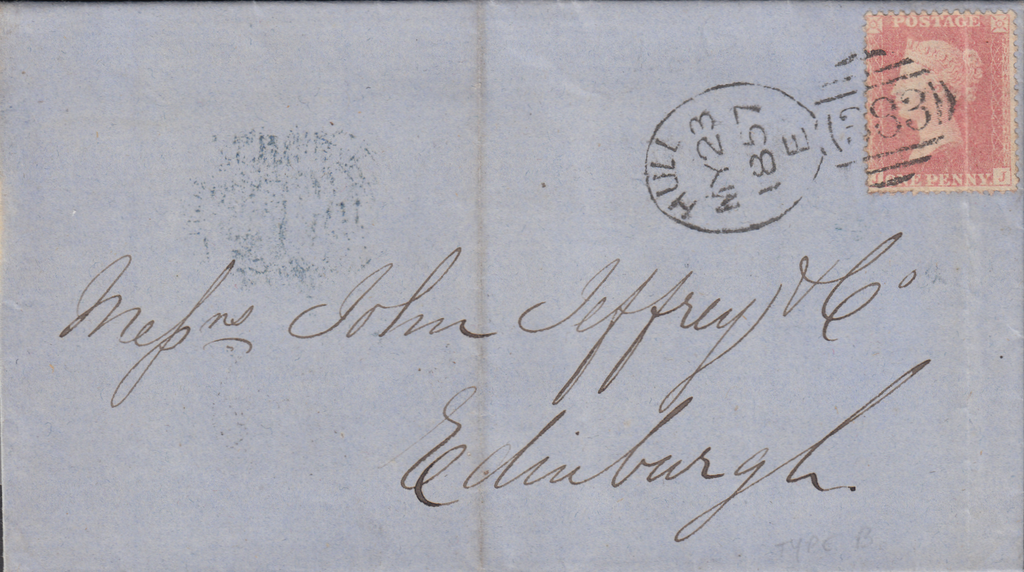 POSTAGE
HULL
MY 23
1857
E
383
ONE PENNY
J
Messrs John Jeffrey & Co
Edinburgh.
TYPE B